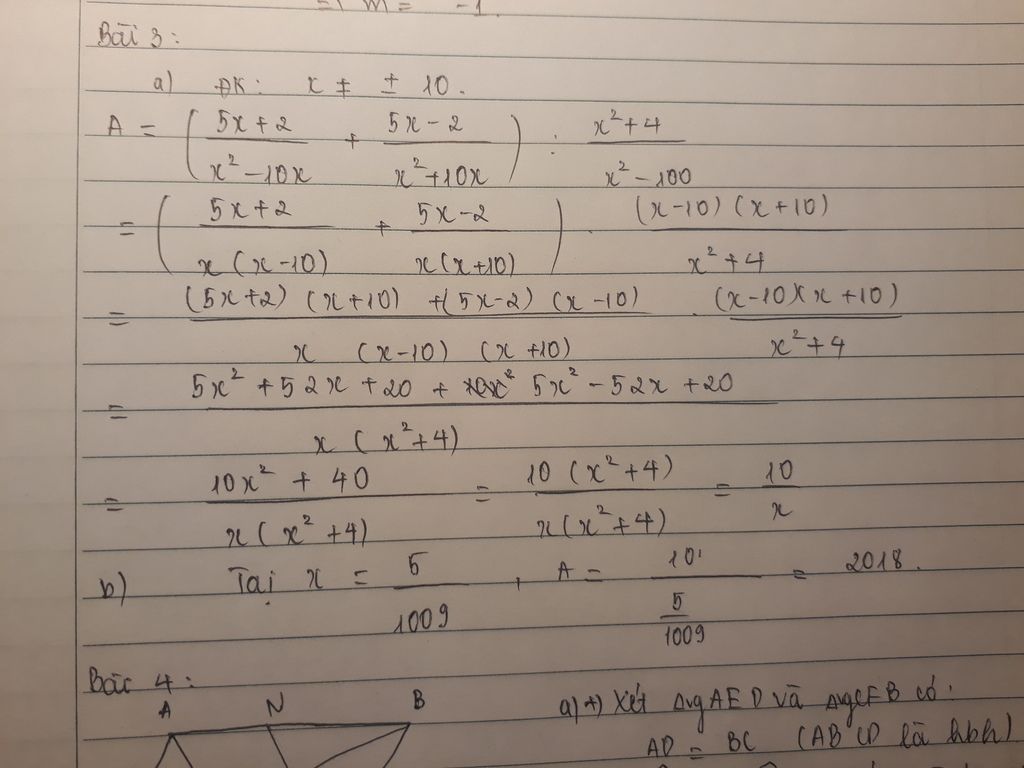 => m = -1.
Bài 3:
a) ĐK: x ≠ ± 10.
A = ( (5x+2)/(x² - 10x) + (5x-2)/(x²+10x) ) : (x²+4)/(x² - 100)
= ( (5x+2)/(x(x-10)) + (5x-2)/(x(x+10)) ) . ((x-10)(x+10))/(x²+4)
= ((5x+2)(x+10) + (5x-2)(x-10))/(x(x-10)(x+10)) . ((x-10)(x+10))/(x²+4)
= (5x² + 52x + 20 + 5x² - 52x + 20)/(x(x²+4))
= (10x² + 40)/(x(x²+4)) = (10(x²+4))/(x(x²+4)) = 10/x
b) Tại x = 5/1009, A = 10/(5/1009) = 2018.
Bài 4:
a) +) Xét ΔvgAED và ΔvgCFB có:
A N B
AD = BC (ABCD là hbh)